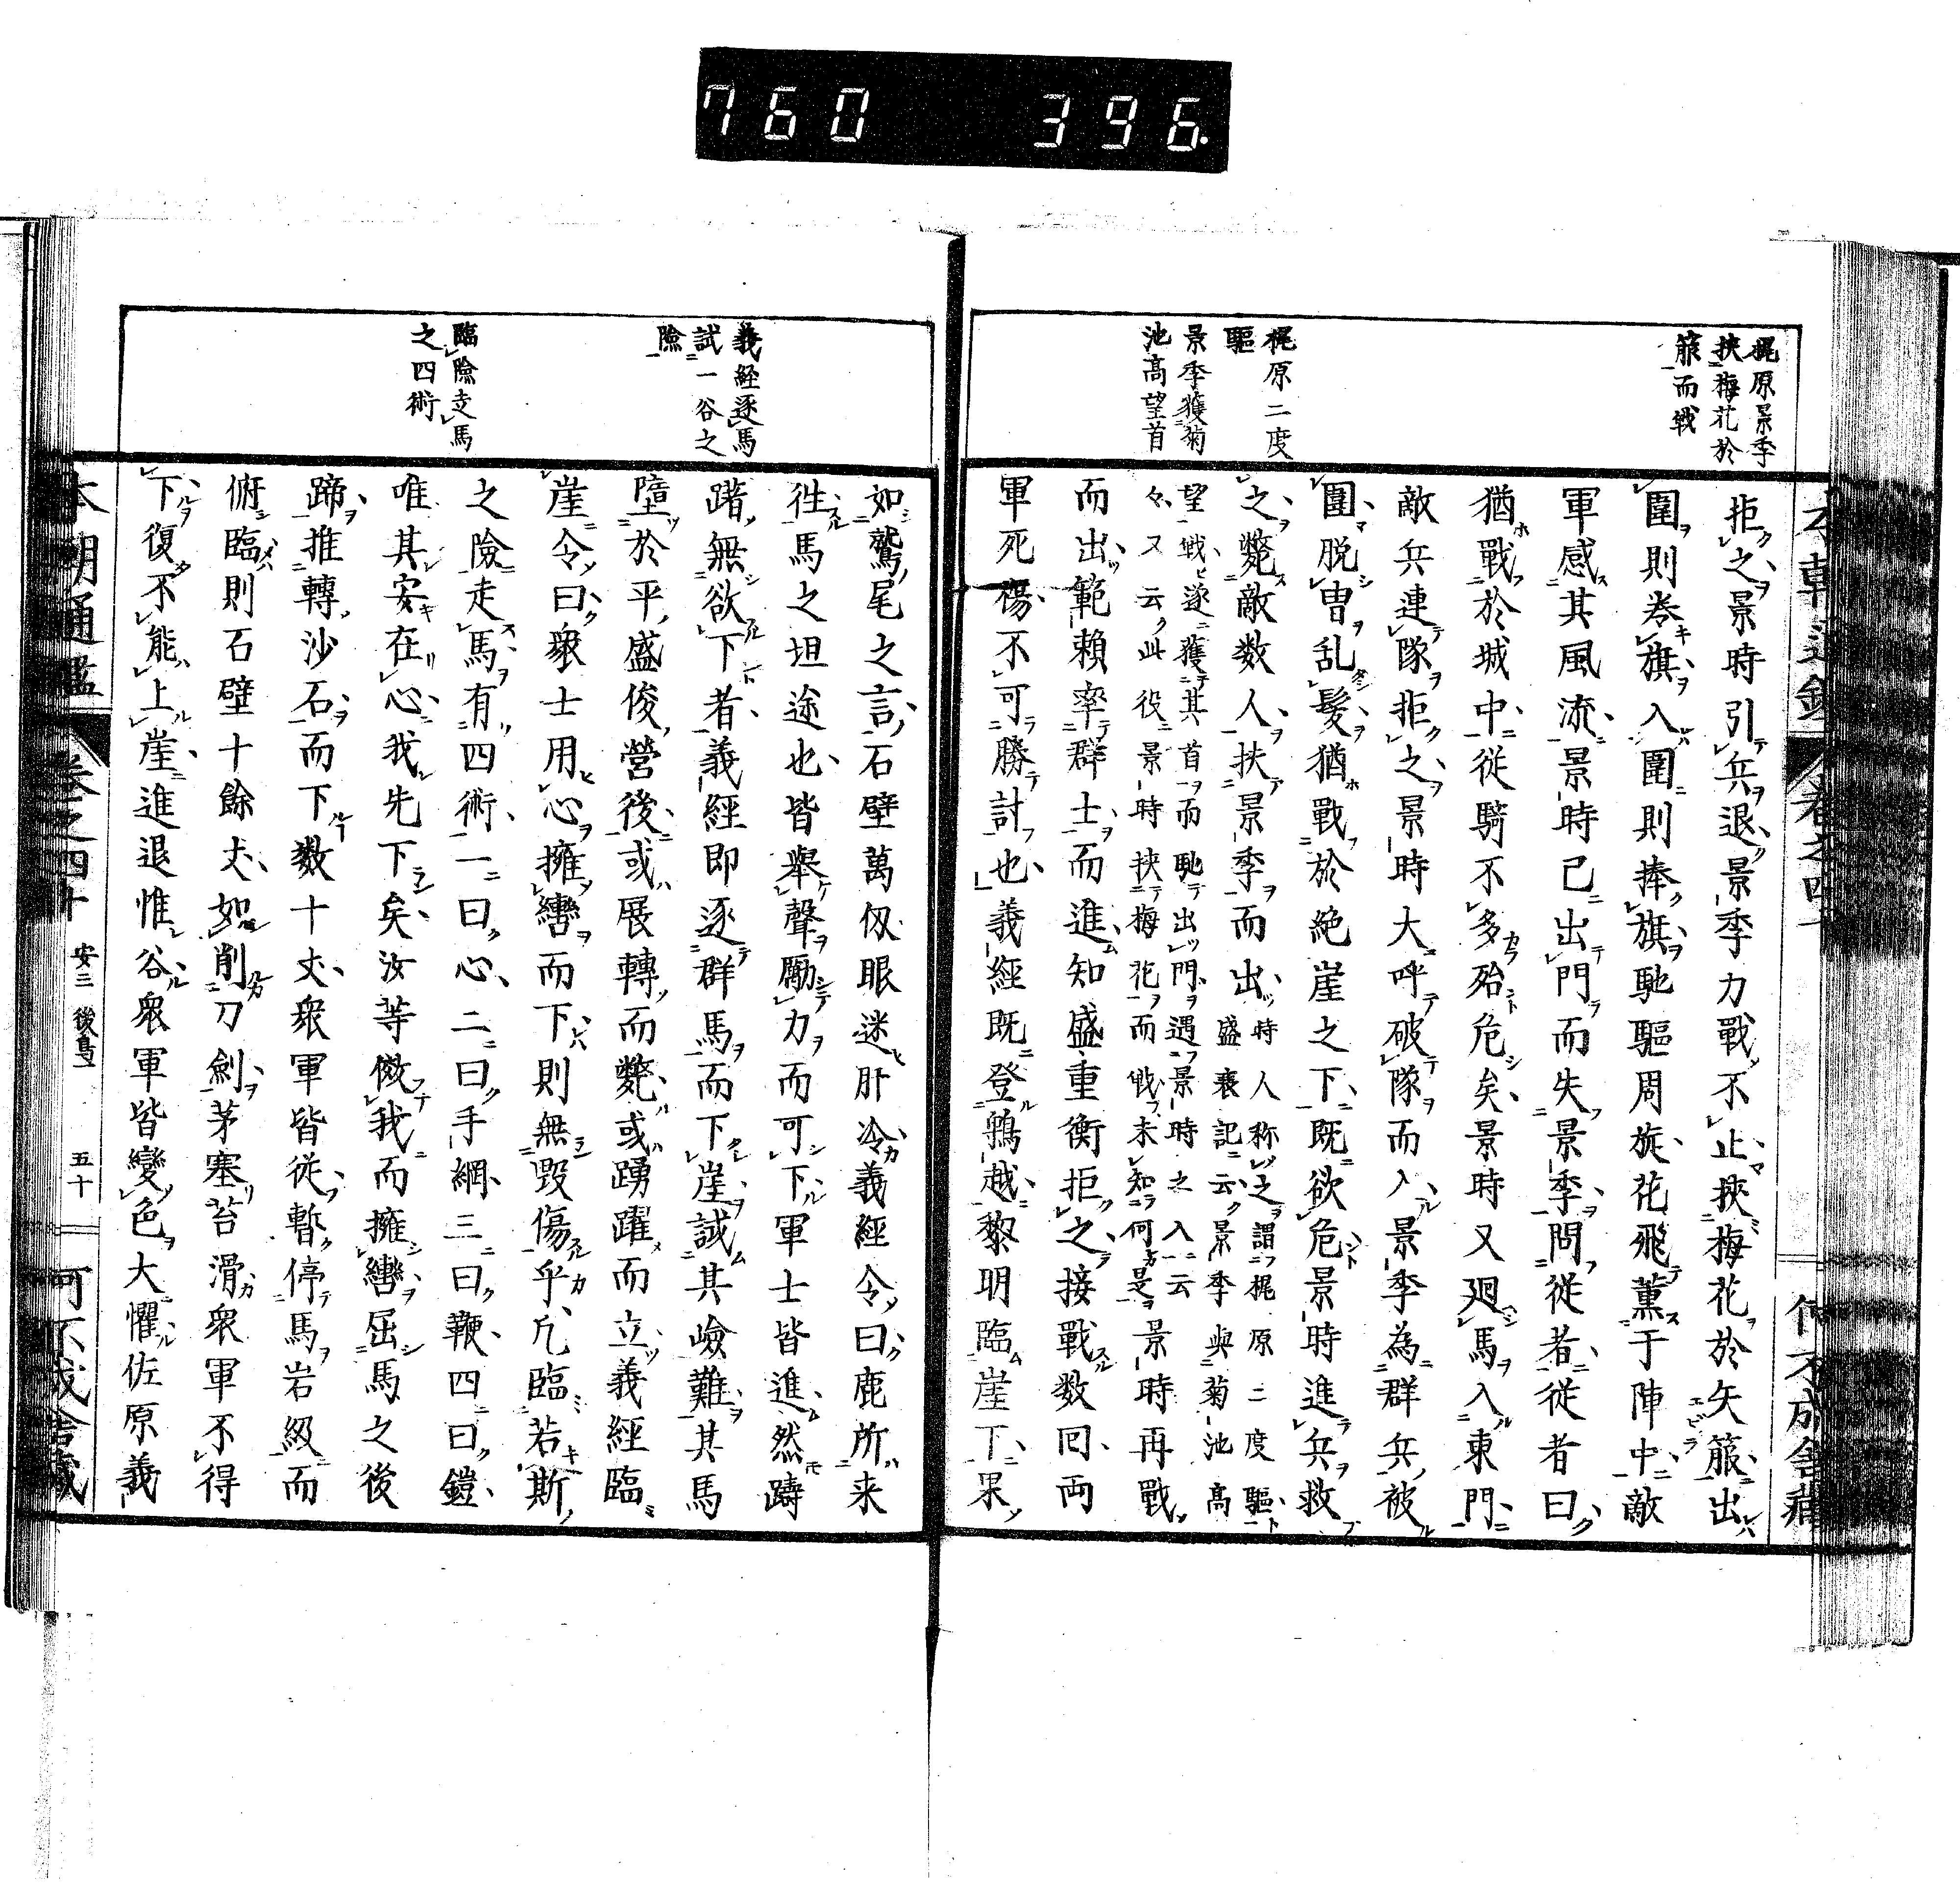 760 396.
梶原景季
挾梅花於
箙而戦
梶原二度
驅
景季獲菊
池高望首
拒之景時引兵退景季力戰不止挾梅花於矢箙出
圍則巻旗入圍則捧旗馳驅周旋花飛薫于陣中敵
軍感其風流景時已出門而失景季問従者従者曰
猶戰於城中従騎不多殆危矣景時又廻馬入東門
敵兵連隊拒之景時大呼破隊而入景季為群兵被
圍脱冑乱髪猶戰於絶崖之下既欲危景時進兵救
之斃敵数人扶景季而出
時人称之謂梶原二度驅
盛衰記云景季與菊池高
望戦遂獲其首而馳出門遇景時之入云
々又云此役景時挾梅花而戦未知何是景時再戰
而出範賴率群士而進知盛重衡拒之接戰数回両
軍死傷不可勝計也義經既登鵯越黎明臨崖下果
義経逐馬
試一谷之
險
臨險走馬
之四術
如鷲尾之言石壁萬仭眼迷肝冷義經令曰鹿所来
徃馬之坦途也皆舉聲勵力而可下軍士皆進然躊
躇無欲下者義經即逐群馬而下崖試其嶮難其馬
墮於平盛俊營後或展轉而斃或踴躍而立義經臨
崖令曰衆士用心擁轡而下則無毀傷乎凡臨若斯
之險走馬有四術一曰心二曰手綱三曰鞭四曰鐙
唯其安在心我先下矣汝等傚我而擁轡屈馬之後
蹄推轉沙石而下数十丈衆軍皆従暫停馬岩級而
俯臨則石壁十餘丈如削刀劍茅塞苔滑衆軍不得
下復不能上崖進退惟谷衆軍皆變色大懼佐原義
本朝通鑑 卷之四十 安三 後鳥 五十 何不成舎蔵